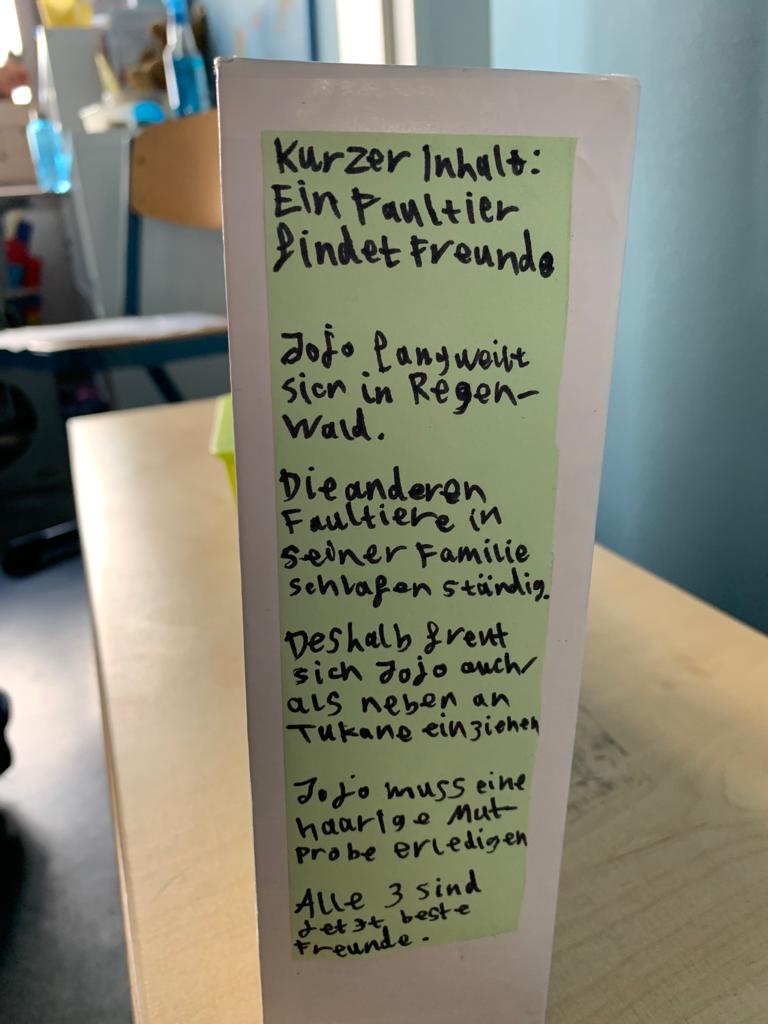 Kurzer Inhalt:
Ein Faultier
findet Freunde
Jojo langweilt
sich in Regen-
Wald.
Die anderen
Faultiere in
seiner Familie
schlafen ständig.
Deshalb freut
sich Jojo auch
als neben an
Tukane einziehen
Jojo muss eine
haarige Mut-
Probe erledigen
Alle 3 sind
Jetzt beste
Freunde.